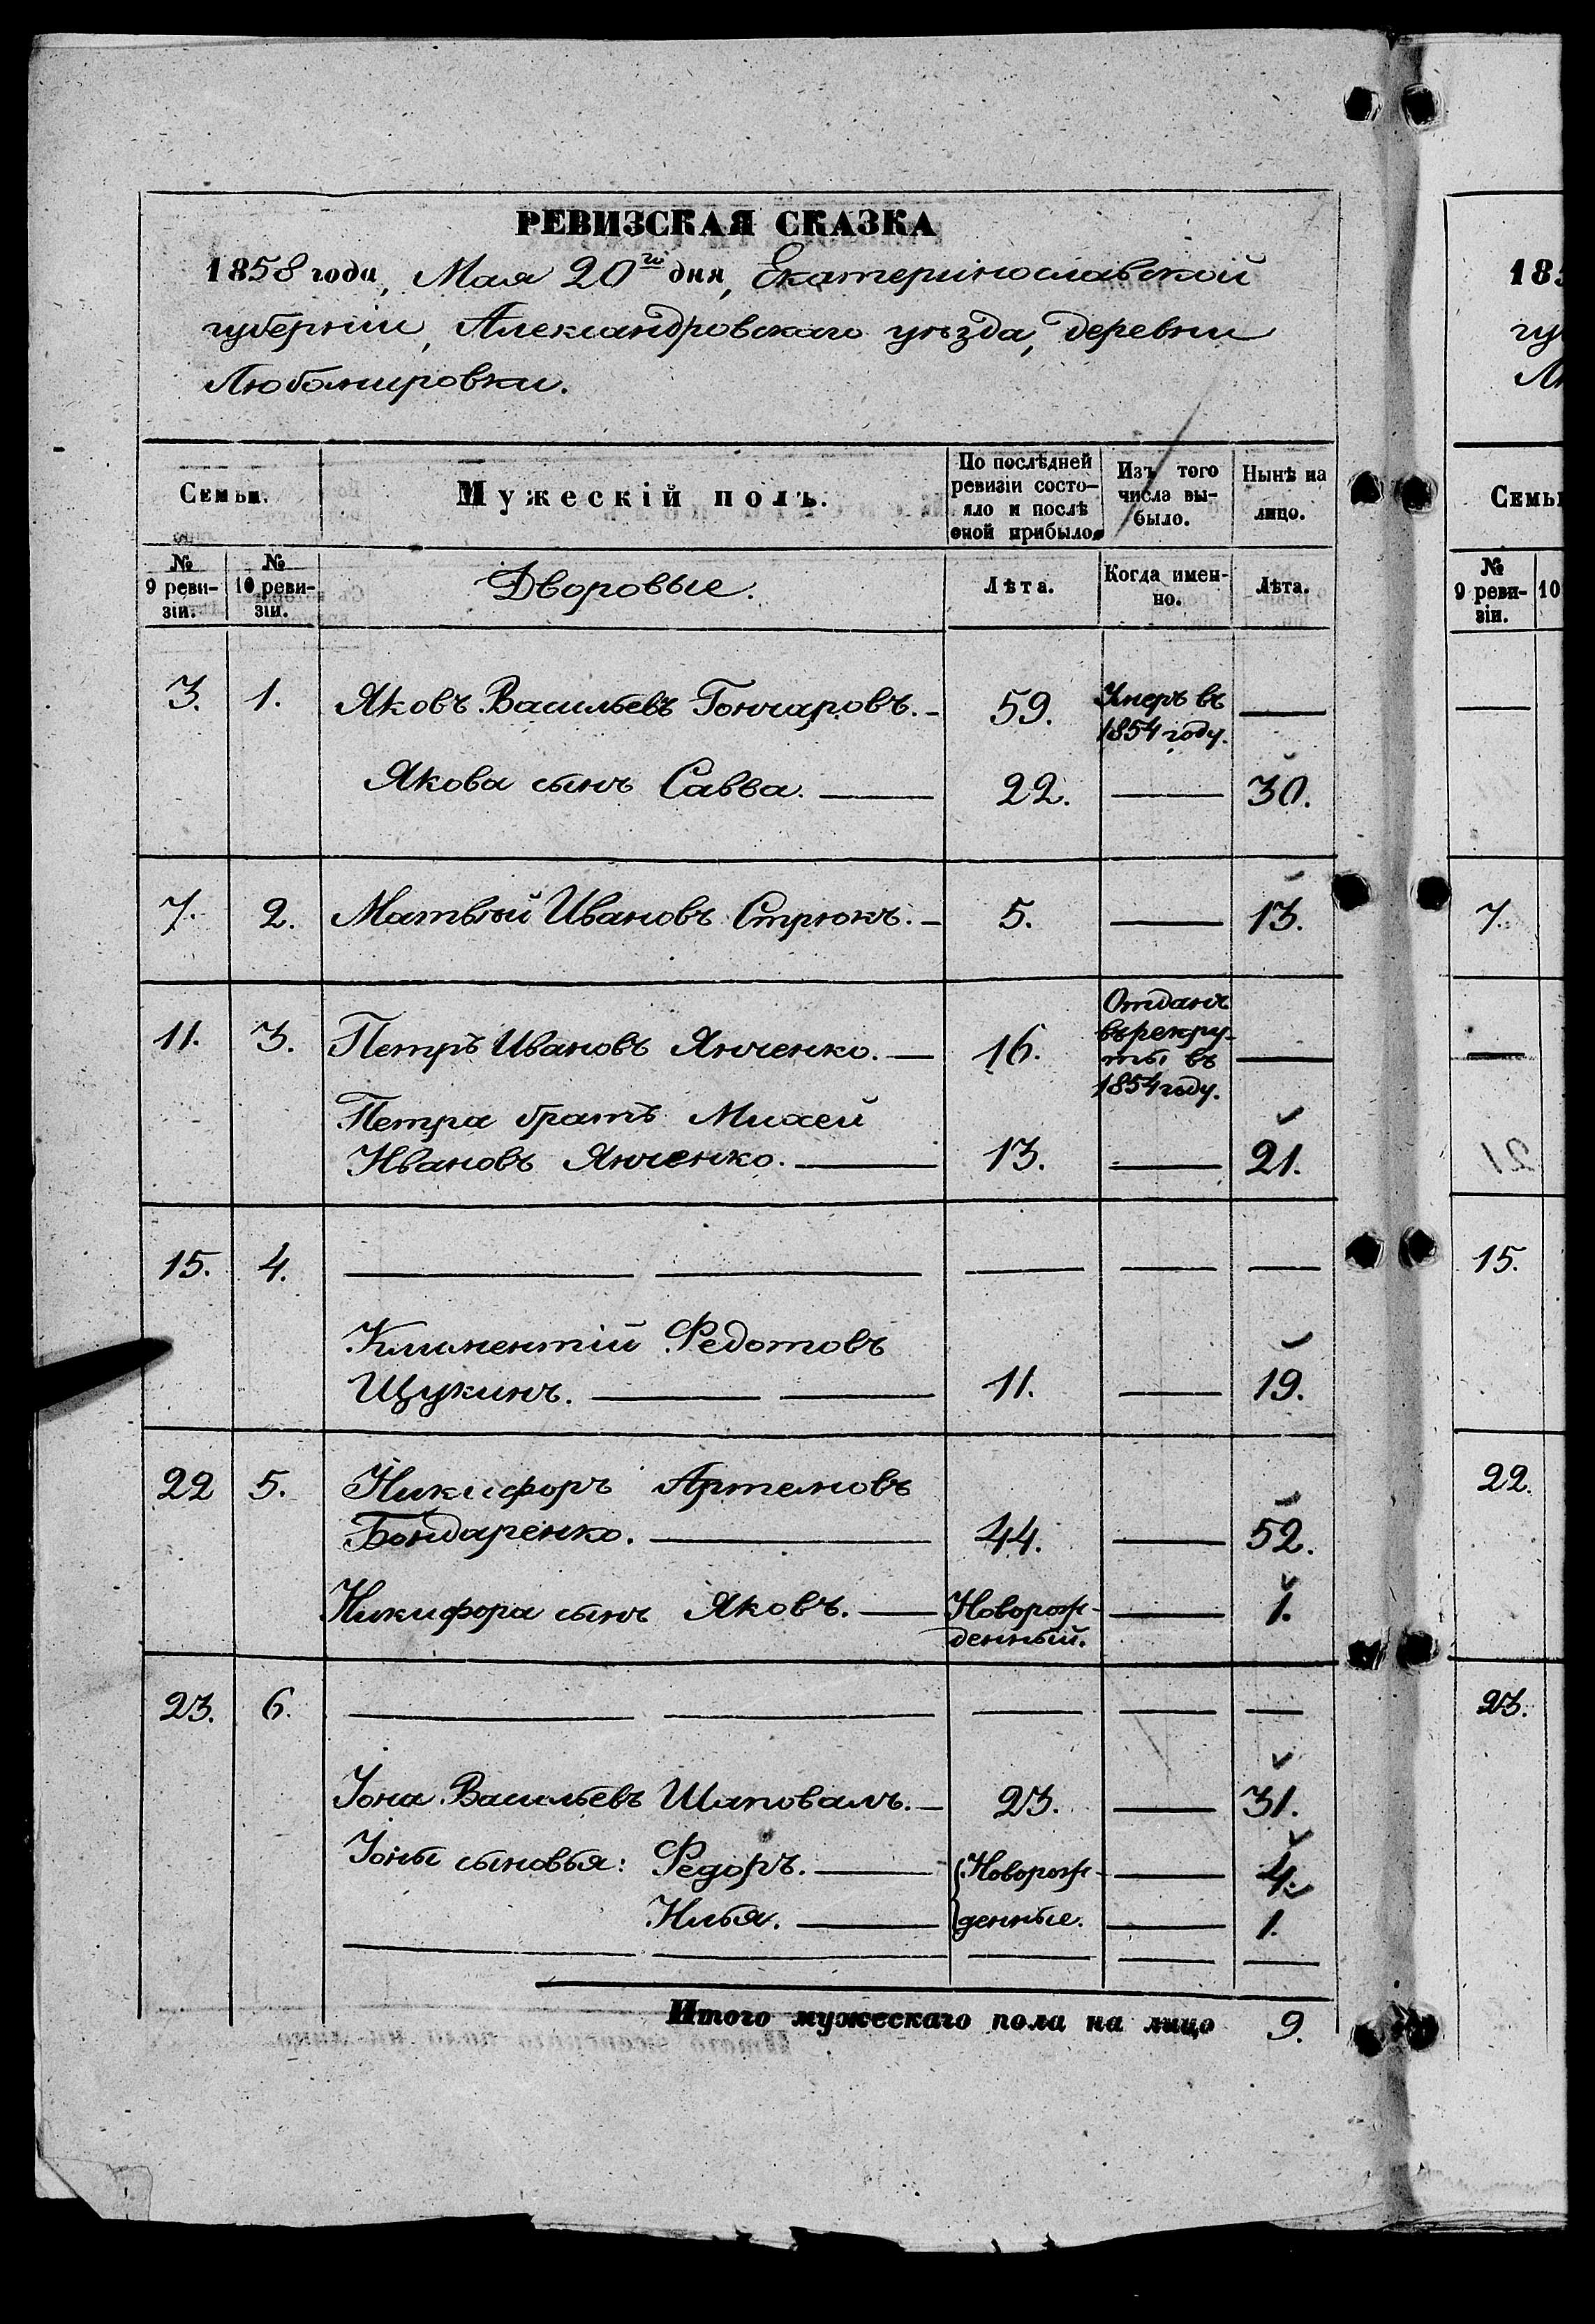 РЕВИЗСКАЯ СКАЗКА
1858 года, Мая 20го дня, Екатеринославской
губернiи, Александровскаго уѣзда, деревни
Любомировки.
Семьи.
Мужескій полъ.
По послѣдней ревизіи состо-яло и послѣ оной прибыло.
Изъ того числа вы-было.
Нынѣ на лицо.
№ 9 реви-зіи.
№ 10 реви-зіи.
Дворовые.
Лѣта.
Когда имен-но.
Лѣта.
3. 1. Яковъ Васильевъ Гончаровъ. 59. Умеръ въ 1854 году.
Якова сынъ Савва. 22. 30.
7. 2. Матвѣй Ивановъ Стрюкъ. 5. 13.
11. 3. Петръ Ивановъ Янченко. 16. Отданъ въ рекру-ты въ 1854 году.
Петра братъ Михей
Ивановъ Янченко. 13. 21.
15. 4.
Климентій Федотовъ
Щукинъ. 11. 19.
22 5. Никифоръ Артемовъ
Бондаренко. 44. 52.
Никифора сынъ Яковъ. Новорож-денный. 1.
23. 6.
Іона Васильевъ Шаповалъ. 23. 31.
Іоны сыновья: Федоръ. Новорож- 4.
Илья. денные. 1.
Итого мужескаго пола на лицо 9.
185
гу
Лю
Семьи
№ 9 реви-зіи.
10
7.
21
15.
22.
23.